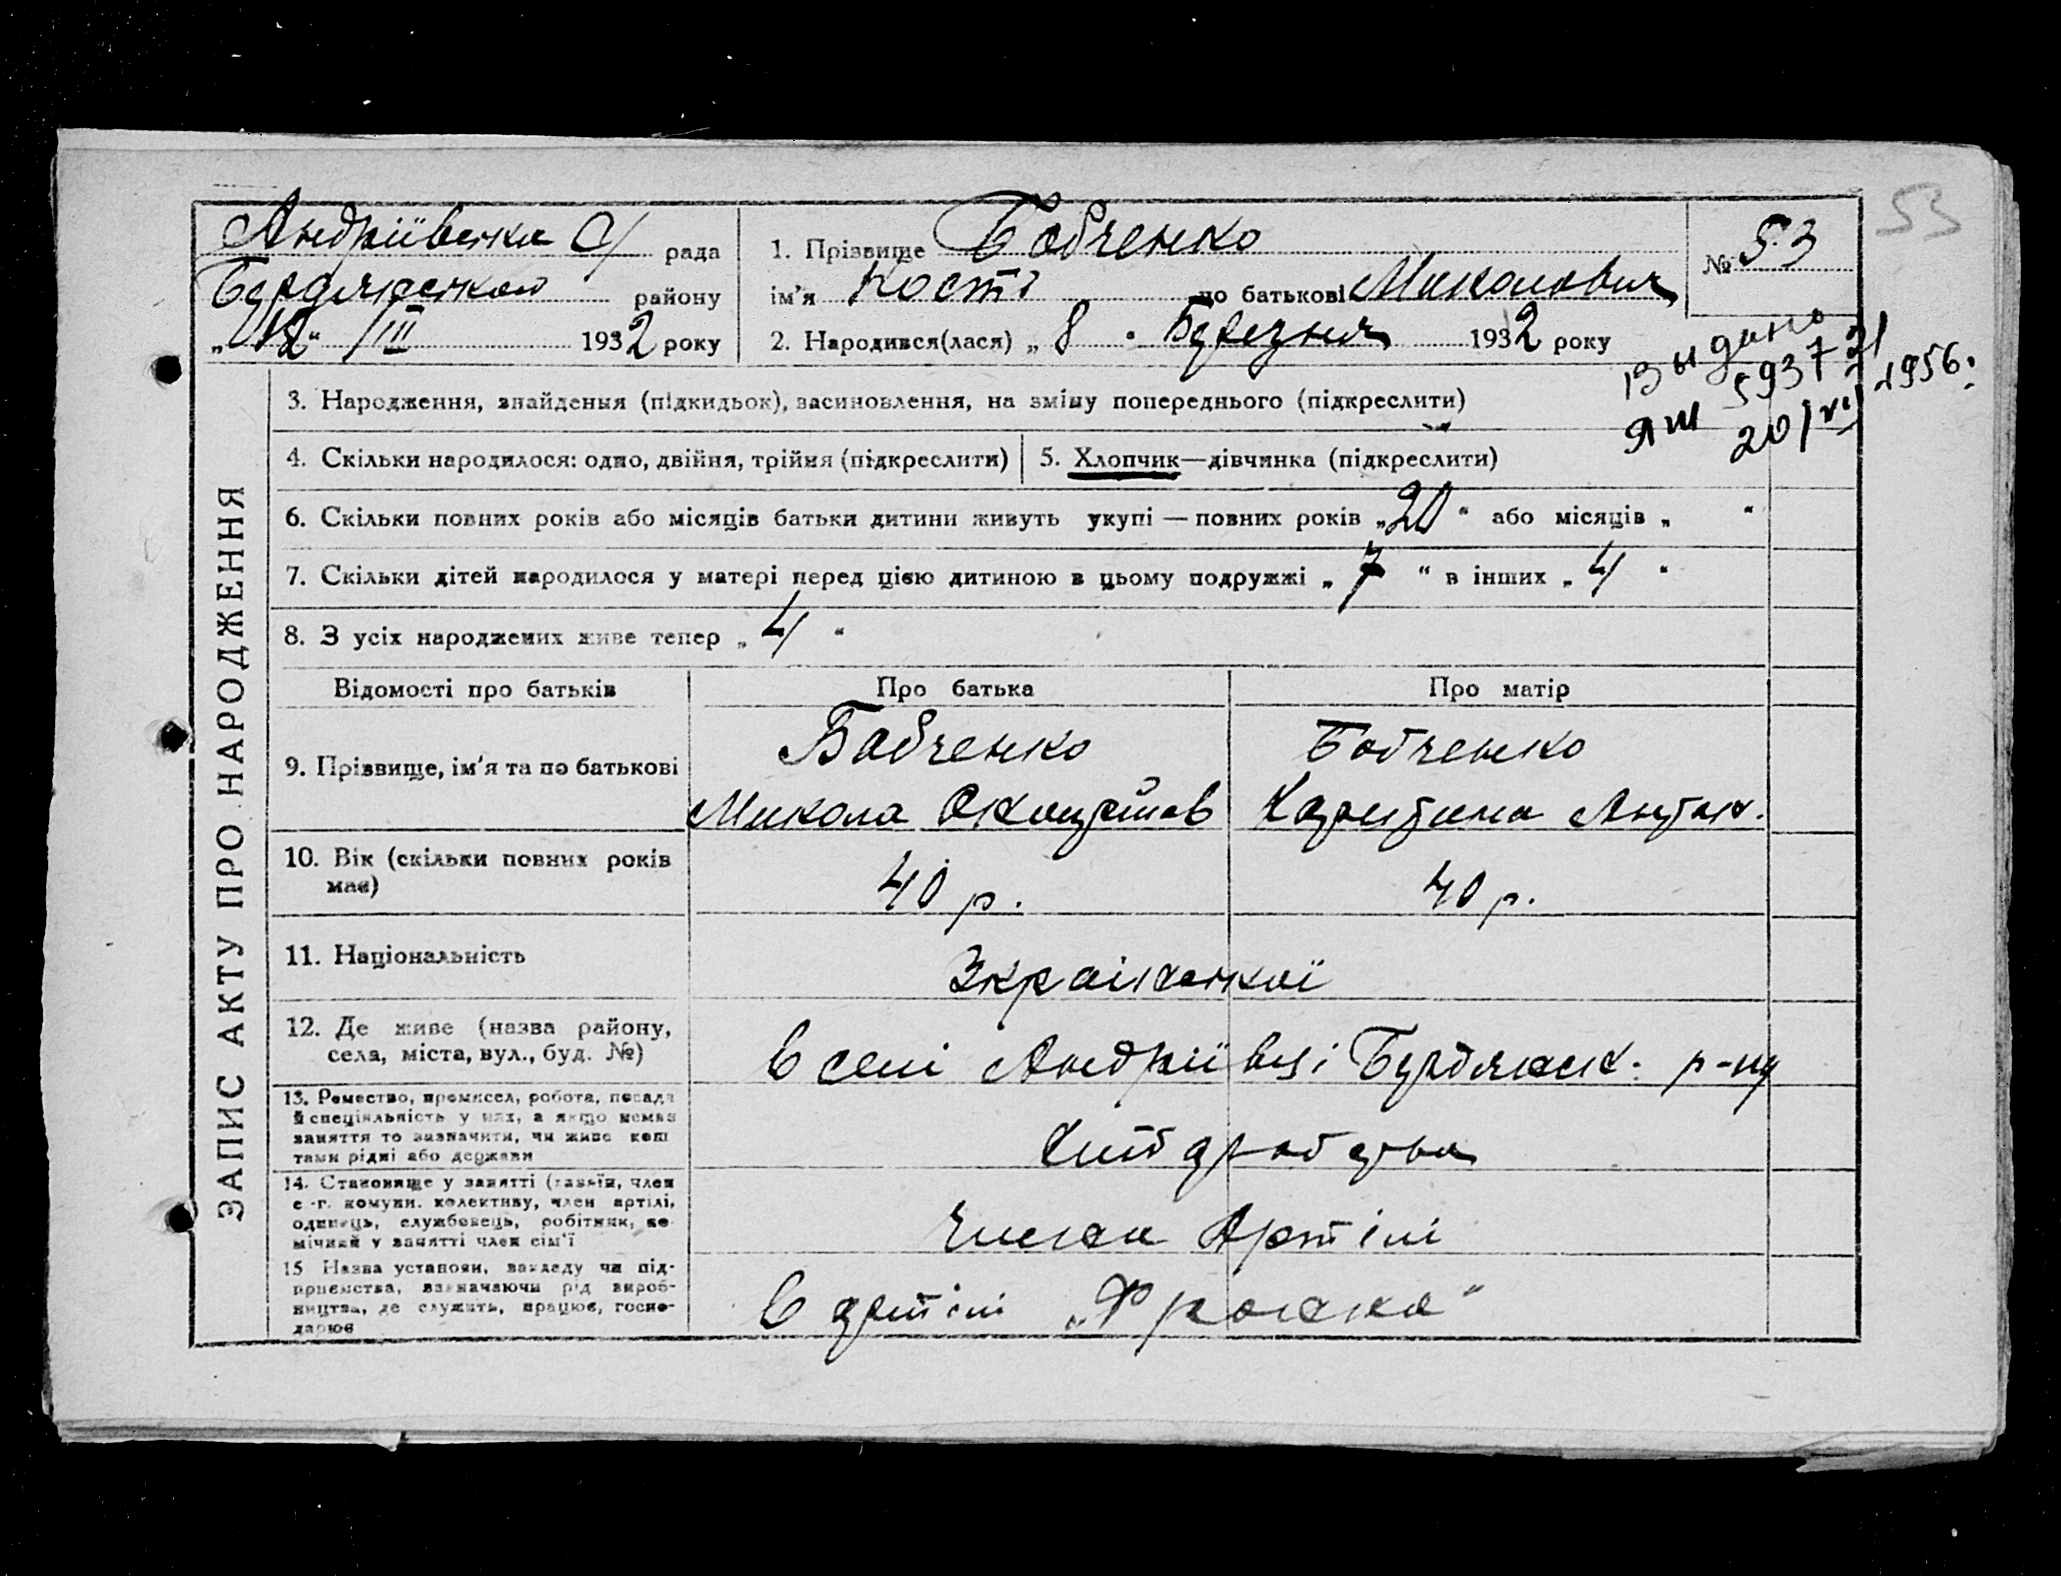 53
Андріївська С/ рада
Бердянського району
„12“ III 1932 року
1. Прізвище Бабченко
ім'я Кость по батькові Миколович
2. Народився(лася) „8“ Березня 1932 року
№ 53
Выдано
ЯШ 593721
20/VI 1956.
ЗАПИС АКТУ ПРО НАРОДЖЕННЯ
3. Народження, знайдення (підкидьок), засиновлення, на зміну попереднього (підкреслити)
4. Скільки народилося: одно, двійня, трійня (підкреслити)
5. Хлопчик—дівчинка (підкреслити)
6. Скільки повних років або місяців батьки дитини живуть укупі — повних років „20“ або місяців „ “
7. Скільки дітей народилося у матері перед цією дитиною в цьому подружжі „7“ в інших „4“
8. З усіх народжених живе тепер „4“
Відомості про батьків Про батька Про матір
9. Прізвище, ім'я та по батькові Бабченко Бабченко
Микола
10. Вік (скільки повних років 40 р. 40 р.
має)
11. Національність Украінської
12. Де живе (назва району,
села, міста, вул., буд. №) в селі Андріївці Бердянськ. р-ну
13. Ремество, промисел, робота, посада
й спеціяльність у них, а якщо немає
заняття то зазначити, чи живе кош
тами рідні або держави Хліборобство
14. Становище у занятті (хазяїн, член
с.-г. комуни, колективу, член артілі,
одинець, службовець, робітник, по-
мічний у занятті член сім'ї члени Артілі
15 Назва установи, закладу чи під-
приємства, зазначаючи рід вироб-
ництва, де служить, працює, госпо-
дарює в артілі